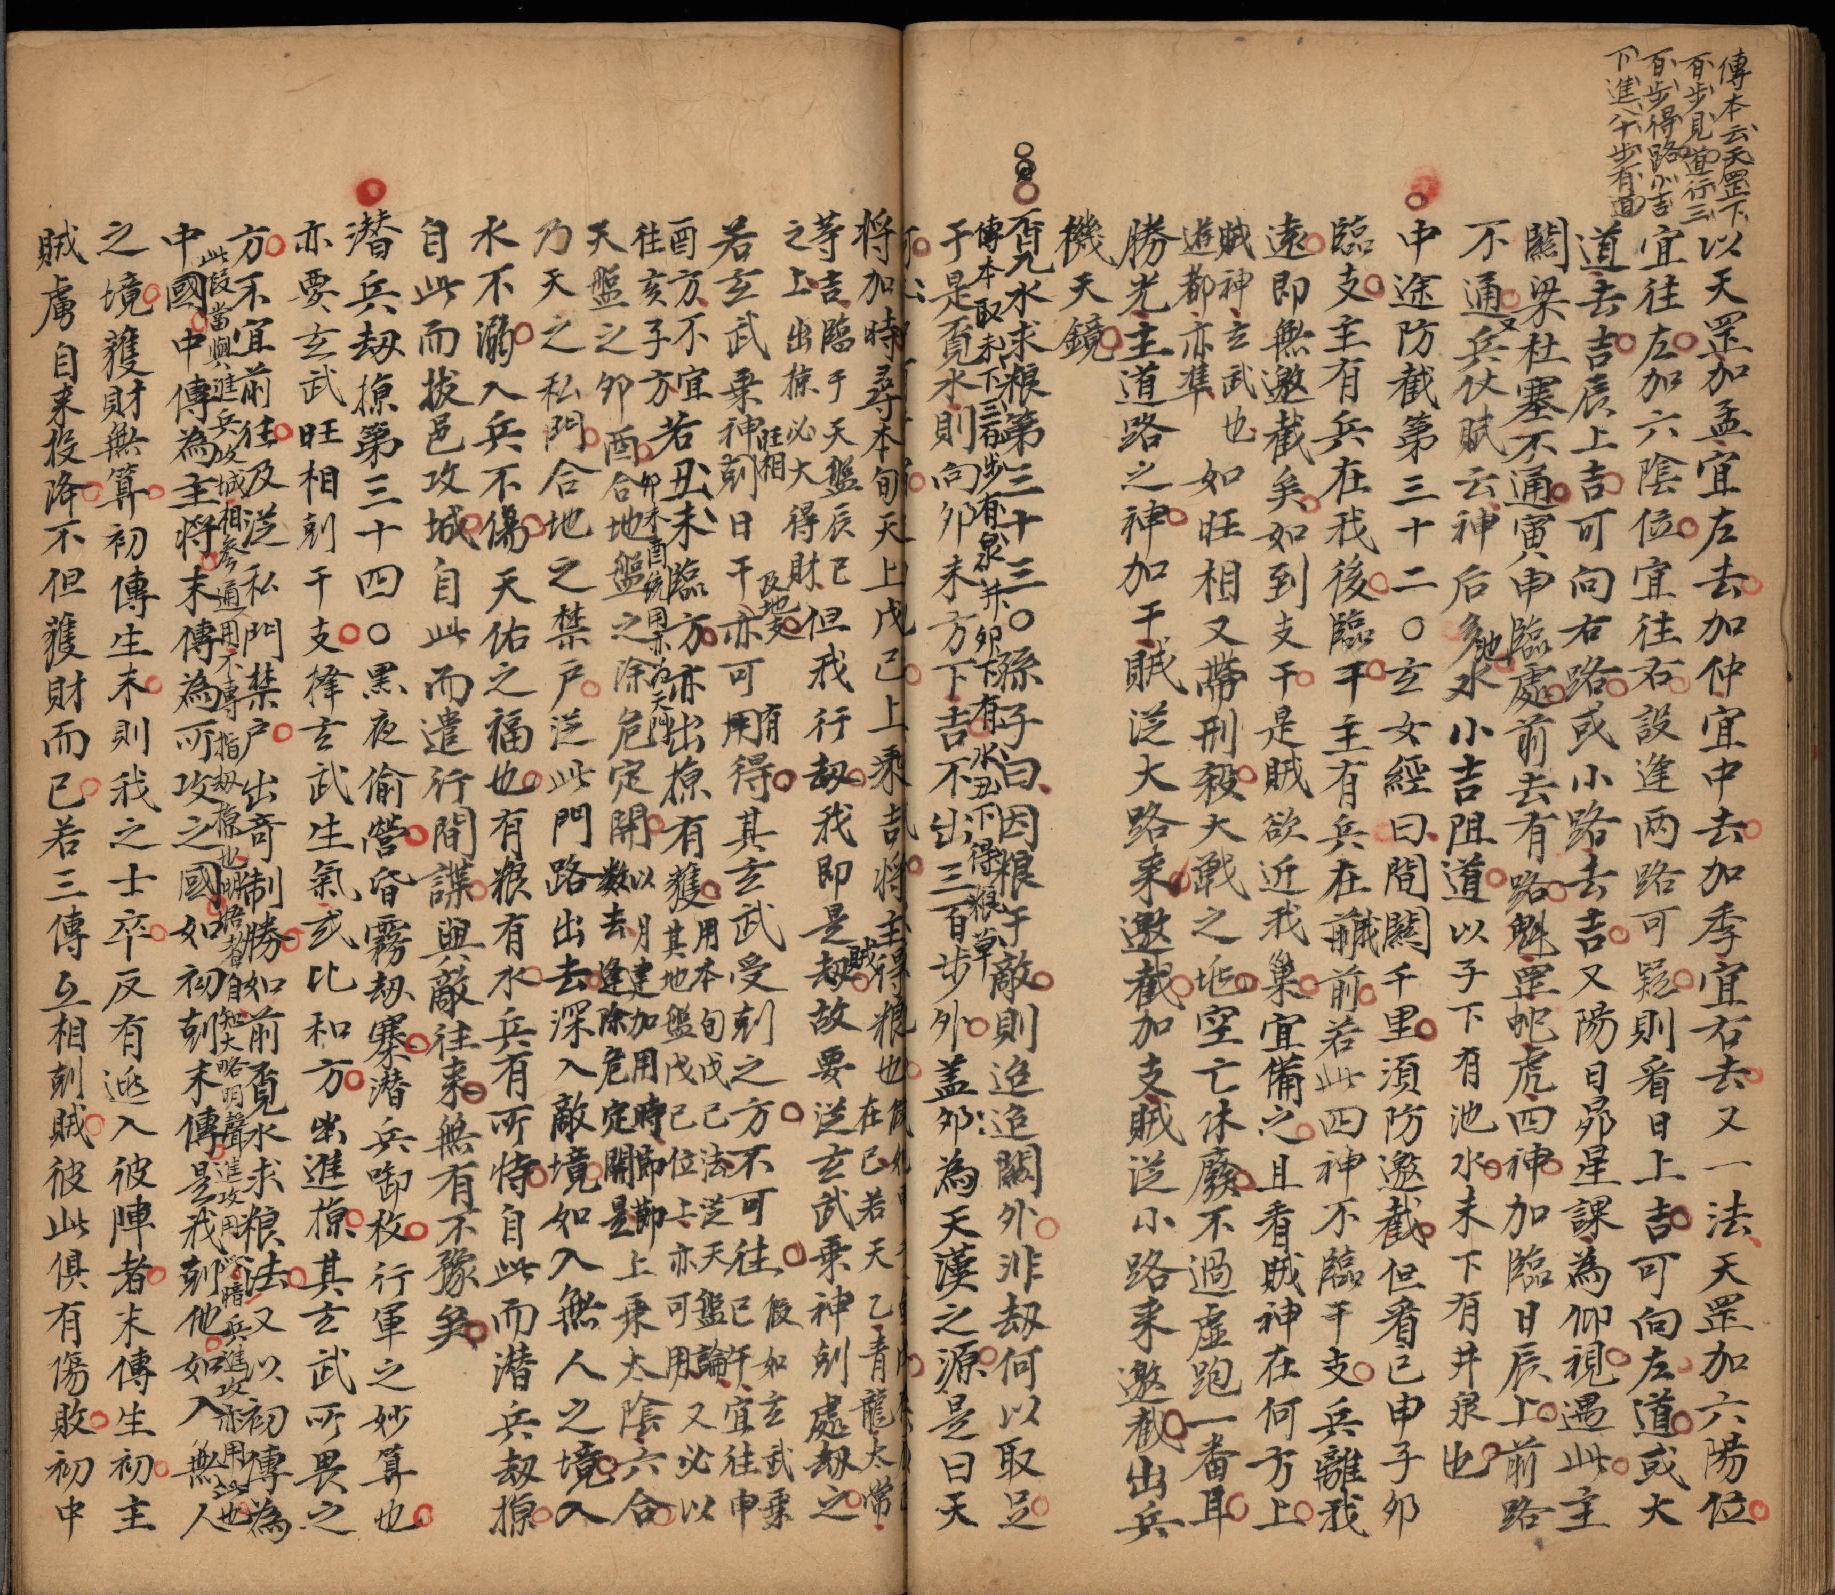 傳本云天罡下
百步見道行三
百步得路小吉
下進八十步有道
以天罡加孟宜左去加仲宜中去加季宜右去又一法天罡加六陽位
宜往左加六陰位宜往右設逢两路可疑則看日上吉可向左道或大
道去吉辰上吉可向右路或小路去吉又陽日昴星課為仰視遇此主
關梁杜塞不通寅申臨處前去有路魁罡蛇虎四神加臨日辰上前路
不通又兵仗賦云神后多池水小吉阻道以子下有池水未下有井泉也
中途防截第三十二○玄女經曰間關千里須防邀截但看已申子卯
臨支主有兵在我後臨干主有兵在前賊前若此四神不臨干支兵離我
遠即無邀截矣如到支干是賊欲近我巢宜備之且看賊神在何方上
賊神玄武也
遊都亦準
如旺相又帶刑殺大戰之地空亡休廢不過虛跑一番耳
勝光主道路之神加干賊從大路来邀截加支賊從小路来邀截出兵
機天鏡
覓水求粮第三十三○孫子曰因粮于敵則迨迨閫外非刼何以取足
傳本取未下三百步有泉井卯下有水丑下得粮草
于是覓水則向卯未方下吉不出三百步外蓋卯為天漢之源是曰天
將加時尋本旬天上戊已上乘吉將主得粮也
等吉臨于天盤辰巳及地
之上出掠必大得財
但我行刼我即是刼賊故要從玄武乗神尅處刼之
在巳若天乙青龍太常
若玄武乗神旺相尅日干亦可用有得其玄武受尅之方不可往
假如玄武乗
巳午宜往申
酉方不宜
往亥子方
若丑未臨方亦出掠有獲
卯未酉統用未為天門
用本旬戊己法從天盤論
其地盤戊己位上亦可用
又必以
天盤之卯酉合地盤之除危定開
以月建加用時節
数去逢除危定開是
上乗太陰六合
乃天之私門合地之禁户從此門路出去深入敵境如入無人之境入
水不溺入兵不傷天佑之福也有粮有水兵有所恃自此而潜兵刼掠
自此而拔邑攻城自此而遣行間諜與敵往来無有不豫矣
潜兵刼掠第三十四○黒夜偷營昏霧刼寨潜兵啣枚行軍之妙算也
亦要玄武旺相尅干支擇玄武生氣或比和方出進掠其玄武所畏之
方不宜前往及從私門禁户出奇制勝如前覓水求粮法又以初傳為
此段當與進兵攻城相參通用不專指刼掠也
中國中傳為主將末傳為所攻之國如初尅末傳是我尅他如入無人
之境獲財無算初傳生末則我之士卒反有逃入彼陣者末傳生初主
賊虜自来投降不但獲財而已若三傳互相尅賊彼此俱有傷敗初中